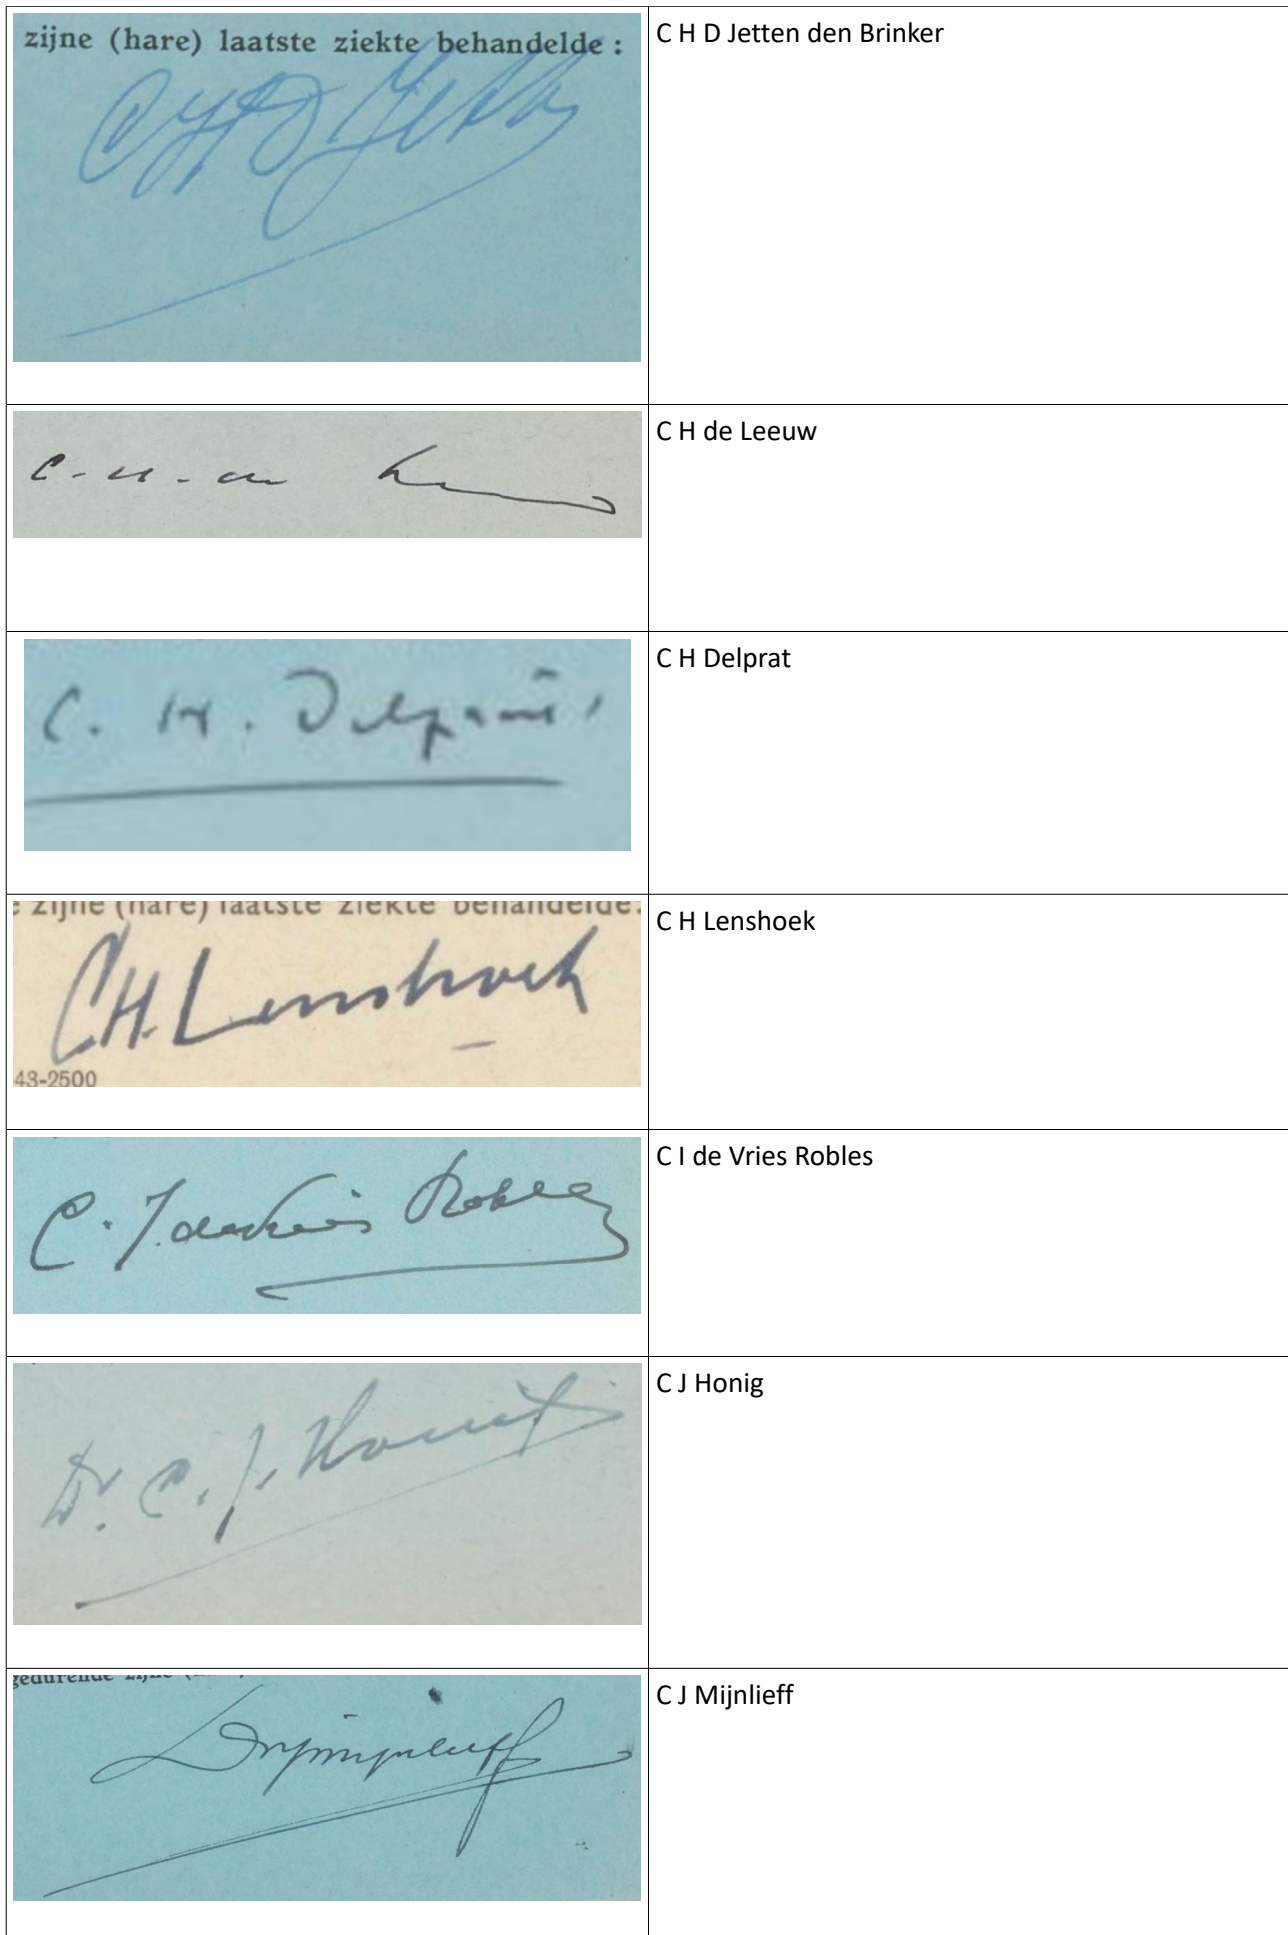 zijne (hare) laatste ziekte behandelde :
C H D Jetten
C H D Jetten den Brinker
C. H. de Leeuw
C H de Leeuw
C. H. Delprat
C H Delprat
e zijne (hare) laatste ziekte behandelde:
CH. Lenshoek
43-2500
C H Lenshoek
C. J. de Vries Robles
C I de Vries Robles
Dr. C. J. Honig
C J Honig
gedurende zijne
Mijnlieff
C J Mijnlieff